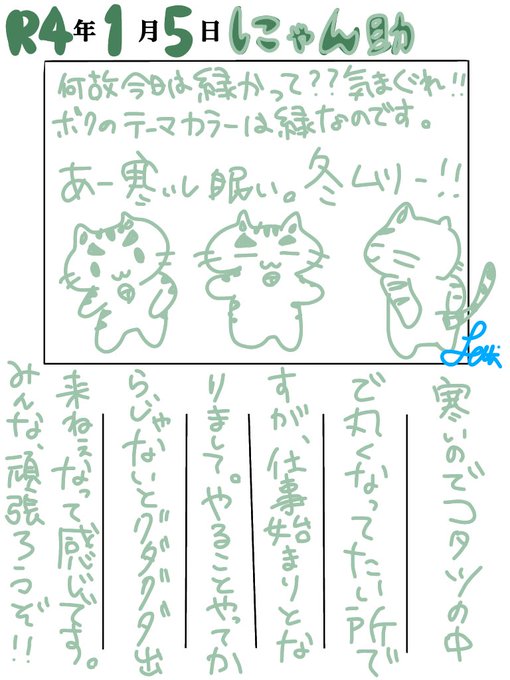 R4年1月5日 にゃん助
何故今日は緑かって??気まぐれ!!
ボクのテーマカラーは緑なのです。
あー寒いし眠い。冬ムリー!!
寒いのでコタツの中
で丸くなってたい所で
すが、仕事始まりとな
りまして。やることやってか
らじゃないとグダグダ出
来ねぇなって感じです。
みんな、頑張ろうぞ!!